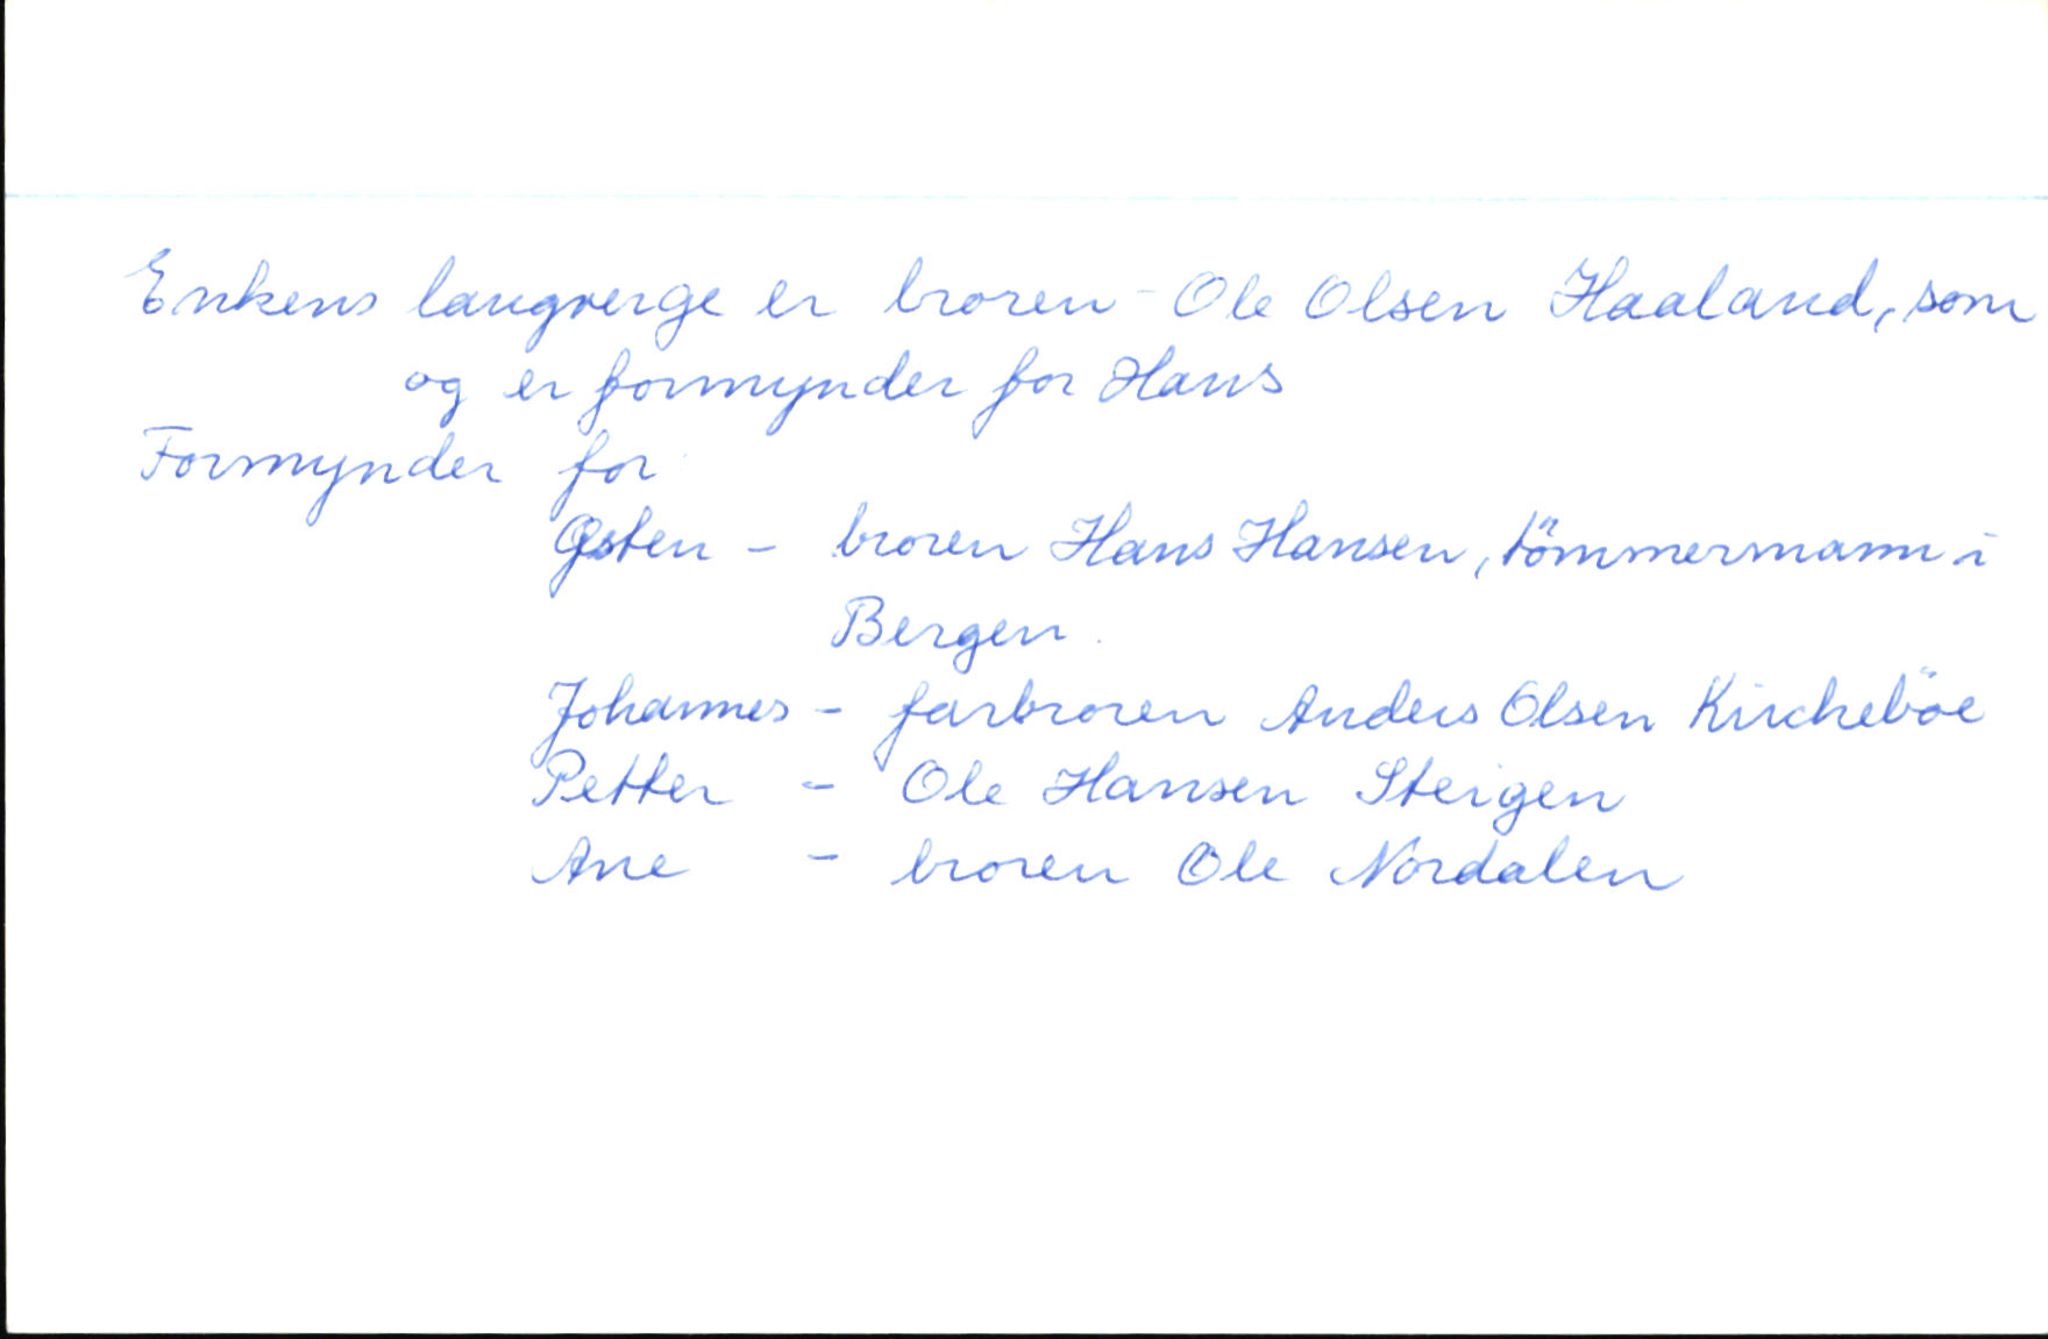 Enkens laugverge er broren - Ole Olsen Haaland, som
og er formynder for Hans
Formynder for
Østen - broren Hans Hansen, tömmermann i
Bergen.
Johannes - farbroren Anders Olsen Kircheböe
Petter - Ole Hansen Steigen
Ane - broren Ole Nordalen